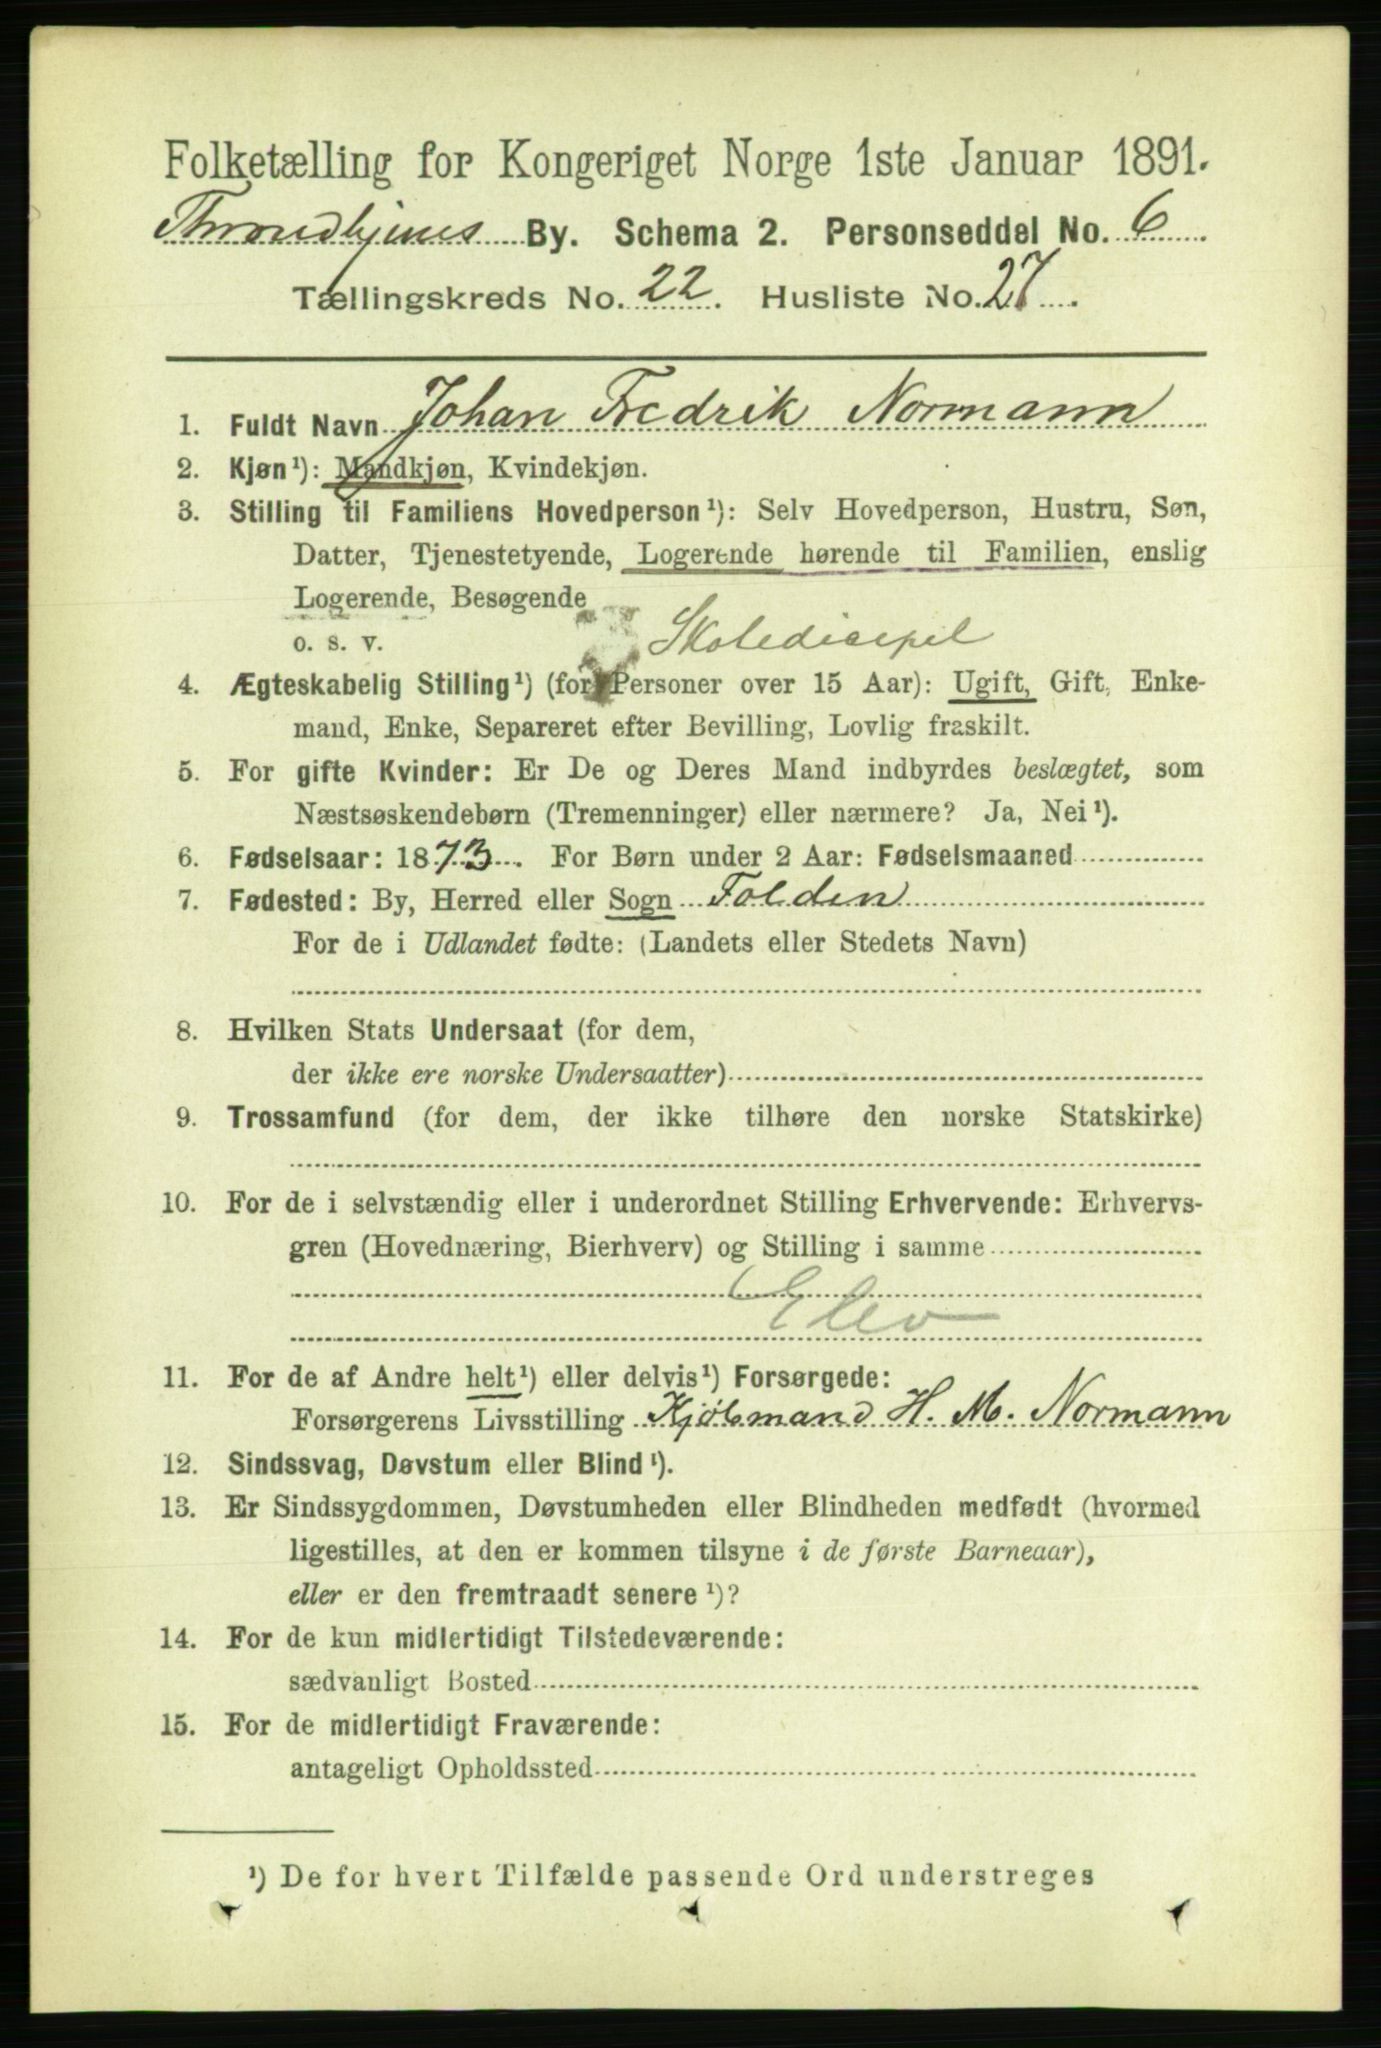 Folketælling for Kongeriget Norge 1ste Januar 1891.
Throndhjems By. Schema 2. Personseddel No. 6
Tællingskreds No. 22. Husliste No. 27.
1. Fuldt Navn Johan Fredrik Normann
2. Kjøn¹): Mandkjøn, Kvindekjøn.
3. Stilling til Familiens Hovedperson¹): Selv Hovedperson, Hustru, Søn,
Datter, Tjenestetyende, Logerende hørende til Familien, enslig
Logerende, Besøgende
o. s. v. Skolediscipel
4. Ægteskabelig Stilling¹) (for Personer over 15 Aar): Ugift, Gift, Enke-
mand, Enke, Separeret efter Bevilling, Lovlig fraskilt.
5. For gifte Kvinder: Er De og Deres Mand indbyrdes beslægtet, som
Næstsøskendebørn (Tremenninger) eller nærmere? Ja, Nei¹).
6. Fødselsaar: 1873. For Børn under 2 Aar: Fødselsmaaned
7. Fødested: By, Herred eller Sogn Folden
For de i Udlandet fødte: (Landets eller Stedets Navn)
8. Hvilken Stats Undersaat (for dem,
der ikke ere norske Undersaatter)
9. Trossamfund (for dem, der ikke tilhøre den norske Statskirke)
10. For de i selvstændig eller i underordnet Stilling Erhvervende: Erhvervs-
gren (Hovednæring, Bierhverv) og Stilling i samme
Elev
11. For de af Andre helt¹) eller delvis¹) Forsørgede:
Forsørgerens Livsstilling Kjøbmand H. M. Normann
12. Sindssvag, Døvstum eller Blind¹).
13. Er Sindssygdommen, Døvstumheden eller Blindheden medfødt (hvormed
ligestilles, at den er kommen tilsyne i de første Barneaar),
eller er den fremtraadt senere¹)?
14. For de kun midlertidigt Tilstedeværende:
sædvanligt Bosted
15. For de midlertidigt Fraværende:
antageligt Opholdssted
¹) De for hvert Tilfælde passende Ord understreges